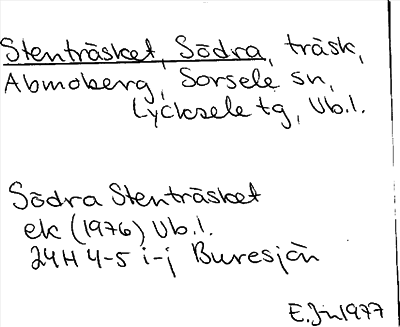 Stenträsket, Södra, träsk,
Abmoberg, Sorsele sn,
Lycksele tg, Vb.l.
Södra Stenträsket
ek (1976) Vb.l.
24H 4-5 i-j Buresjön
1977